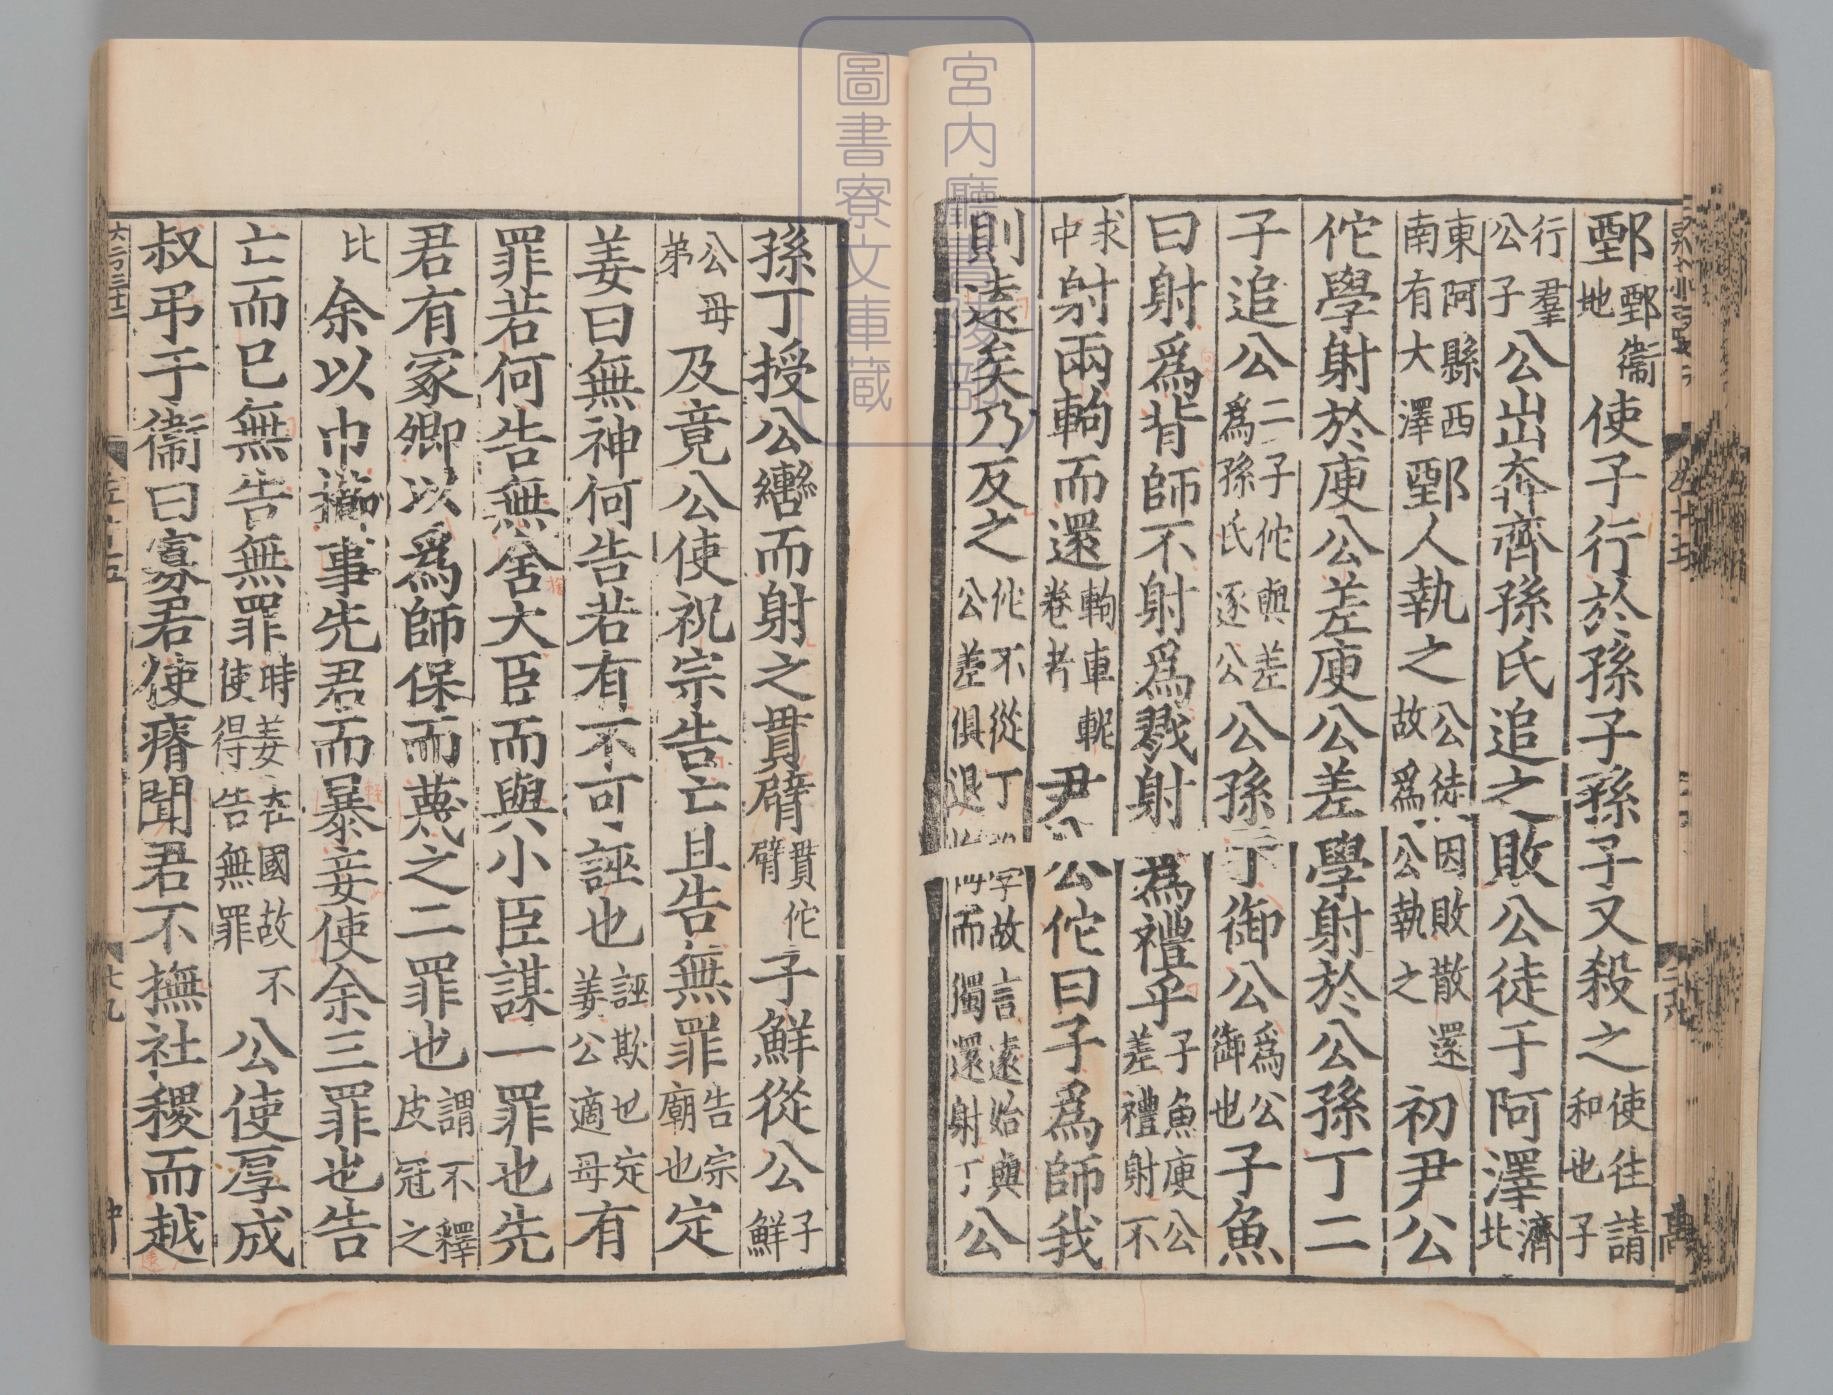 鄄鄄衞地使子行於孫子孫子又殺之使往請和也子
行羣公子公出奔齊孫氏追之敗公徒于阿澤濟北
東阿縣西南有大澤鄄人執之公徒因敗散還故爲公執之初尹公
佗學射於庾公差庾公差學射於公孫丁二
子追公二子佗與差爲孫氏逐公公孫丁御公爲公御也子魚
曰射爲背師不射爲戮射爲禮乎子魚庾公差禮射不
求中射兩軥而還軥車軶卷者尹公佗曰子爲師我
則遠矣乃反之佗不從丁學故言遠始與公差俱退悔而獨還射丁公
孫丁授公轡而射之貫臂貫佗臂子鮮從公子鮮
公母弟及竟公使祝宗告亡且告無罪告宗廟也定
姜曰無神何告若有不可誣也誣欺也定姜公適母有
罪若何告無舍大臣而與小臣謀一罪也先
君有冢卿以爲師保而蔑之二罪也謂不釋皮冠之
比余以巾櫛事先君而暴妾使余三罪也告
亡而已無告無罪時姜在國故不使得告無罪公使厚成
叔弔于衞曰寡君使瘠聞君不撫社稷而越
宮内廳書陵部
圖書寮文庫藏